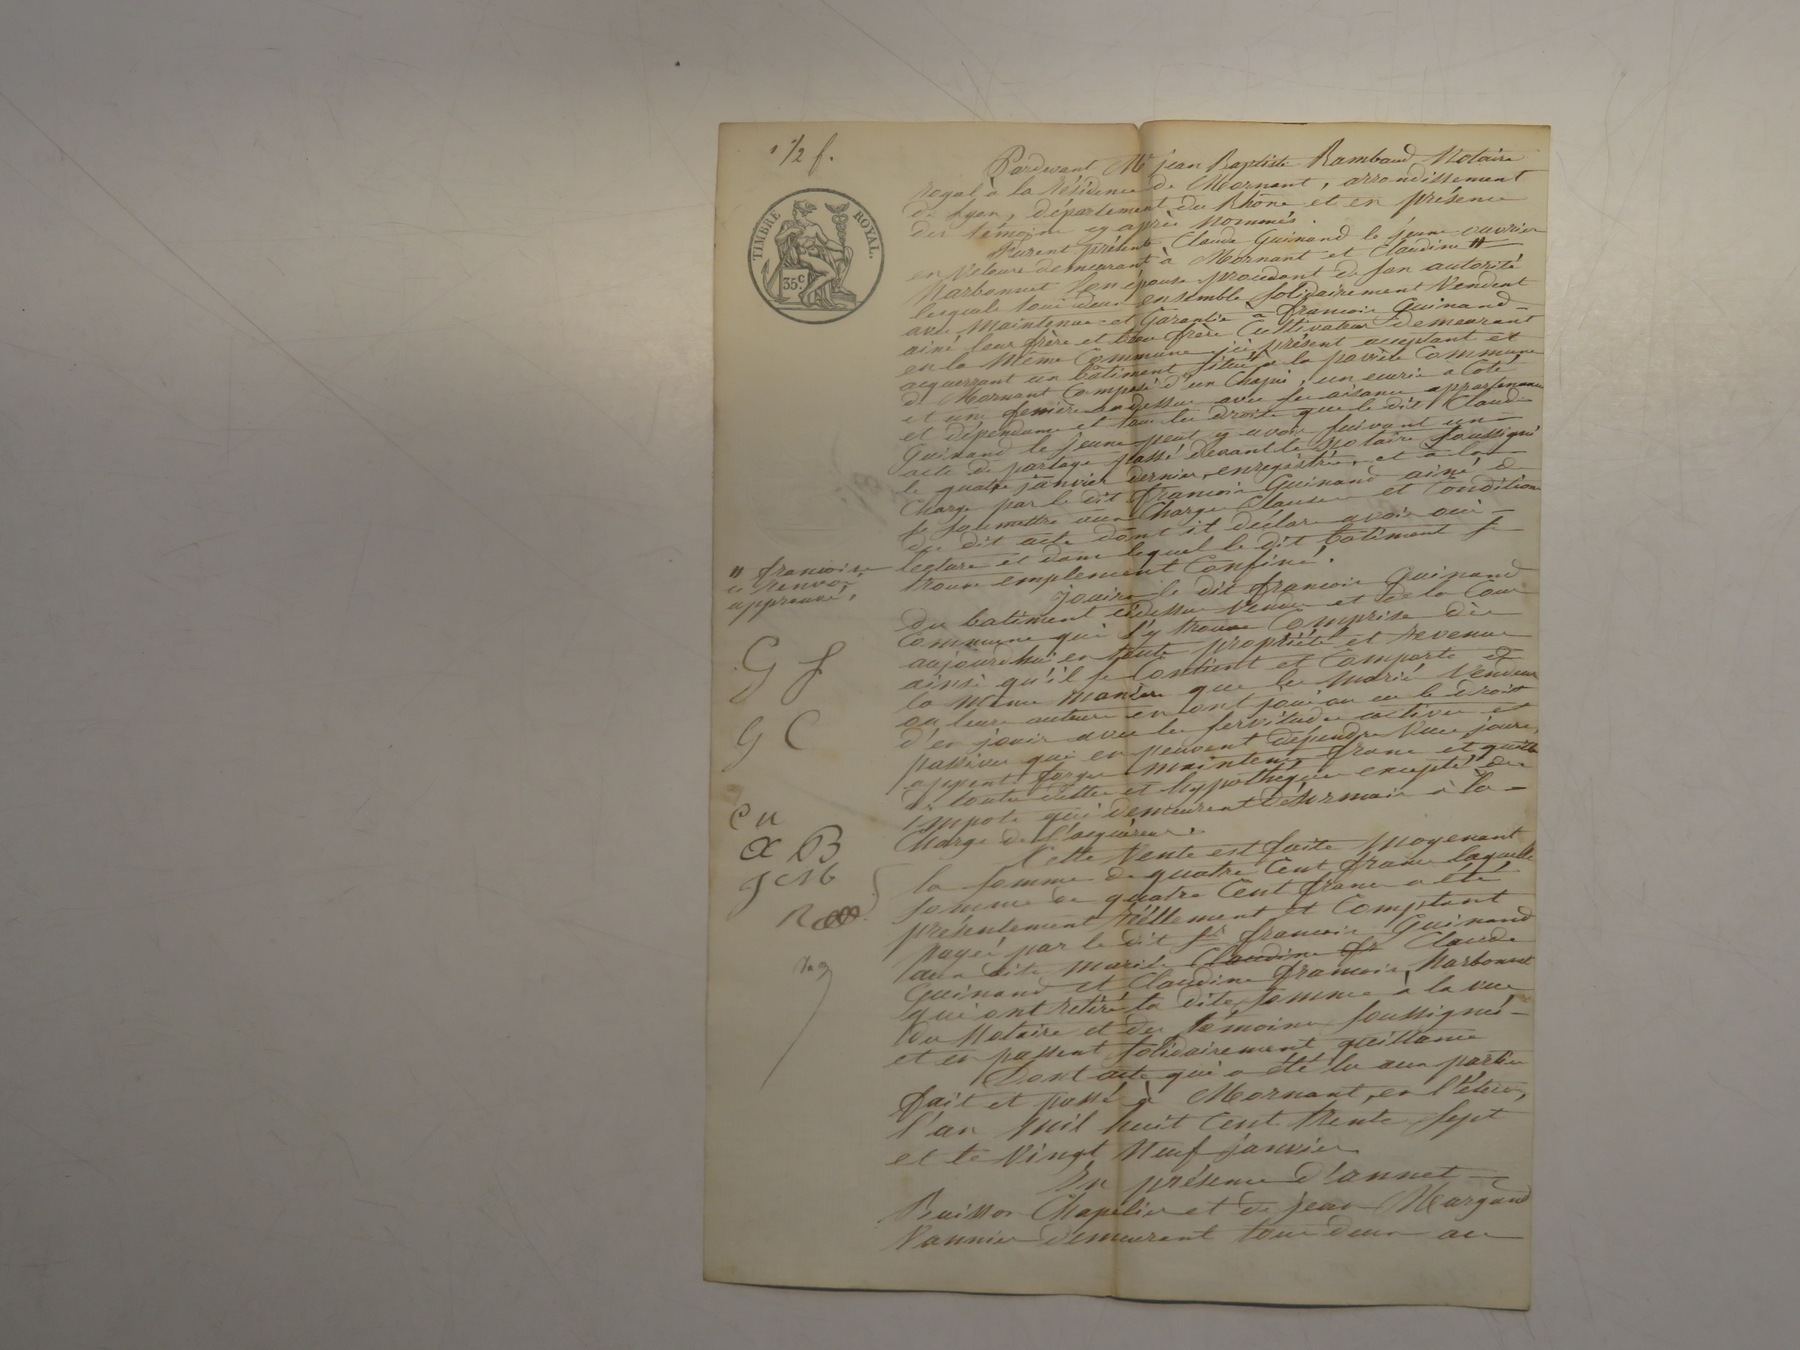 1 1/2 f.
TIMBRE ROYAL.
35 c.
Pardevant Me jean Baptiste Rambaud Notaire
royal à la résidence de Mornant, arrondissement
de Lyon, département du Rhône et en présence
des témoins cy après nommés.
Furent présents Claude Guinand le jeune ouvrier
en Velours demeurant à Mornant et Claudine "
Narbonnet son épouse procedant de son autorité
lesquels tous deux ensemble solidairement Vendent
avec Maintenue et Garantie à francois Guinand
ainé leur frère et beau frère Cultivateur demeurant
en la Même Commune ici présent acceptant et
acquerrant un bâtiment situé à la paroisse Commune
de Mornant Composé d'un Chapit, un ecurie a Coté
et une feniere au dessus avec ses aisances appartenances
et dépendances et tous les droits que le dit Claude
Guinand le jeune peut y avoir suivant un
acte de partage passé devant le Notaire soussigné
le quatre janvier dernier, enregistré, et à la
Charge par le dit francois Guinand ainé de
se soumettre aux Charges Clauses et Conditions
du dit acte dont il déclare avoir oui
lecture et dans lequel le dit bâtiment se
trouve emplement Confiné.
" francoise
ce renvoi
approuvé.
jouira le dit francois Guinand
du batiment cidessus Vendu et de la Cour
Commune qui s'y trouve Comprise dès
aujourdhui en toute propriété et revenus
ainsi qu'il se Contient et Comporte et de
la même manière que les mariés Vendeurs
ou leurs auteurs en ont joui ou eu le droit
d'en jouir avec les servitudes actives et
passives qui en peuvent dépendre Vues, jours,
maintenu franc et quitte
de toutes dettes et hypothèques excepté des
impots qui demeurent désormais à la
Charge de l'acquéreur.
G f
G C
C n
B
R
Cette Vente est faite Moyenant
la somme de quatre Cent francs laquelle
somme de quatre Cent francs a été
présentement réellement et Comptant
payée par le dit sr francois Guinand
aux dits mariés Claudine fr Claude
Guinand et Claudine francoise Narbonnet
qui ont retiré la dite somme à la vue
du Notaire et des témoins soussignés
et en passent solidairement quittance
Dont acte qui a été lu aux parties
fait et passé à Mornant, en l'étude,
l'an Mil huit Cent trente sept
et le Vingt Neuf janvier
En présence d'annet
Buisson Chapelier et de jean Margand
Vannier demeurant tous deux au